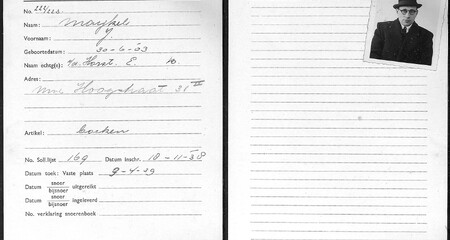 No. 222/223
Naam: Maykels
Voornaam: J.
Geboortedatum: 30-6-03
Naam echtg(e): v/d Horst. E. 10.
Adres:
Hoogstraat 31 III
Artikel: boeken
No. Soll.lijst 169 Datum inschr. 18-11-38
Datum toek: Vaste plaats 9-4-39
Datum snoer
bijsnoer uitgereikt
Datum snoer
bijsnoer ingeleverd
No. verklaring snoerenboek